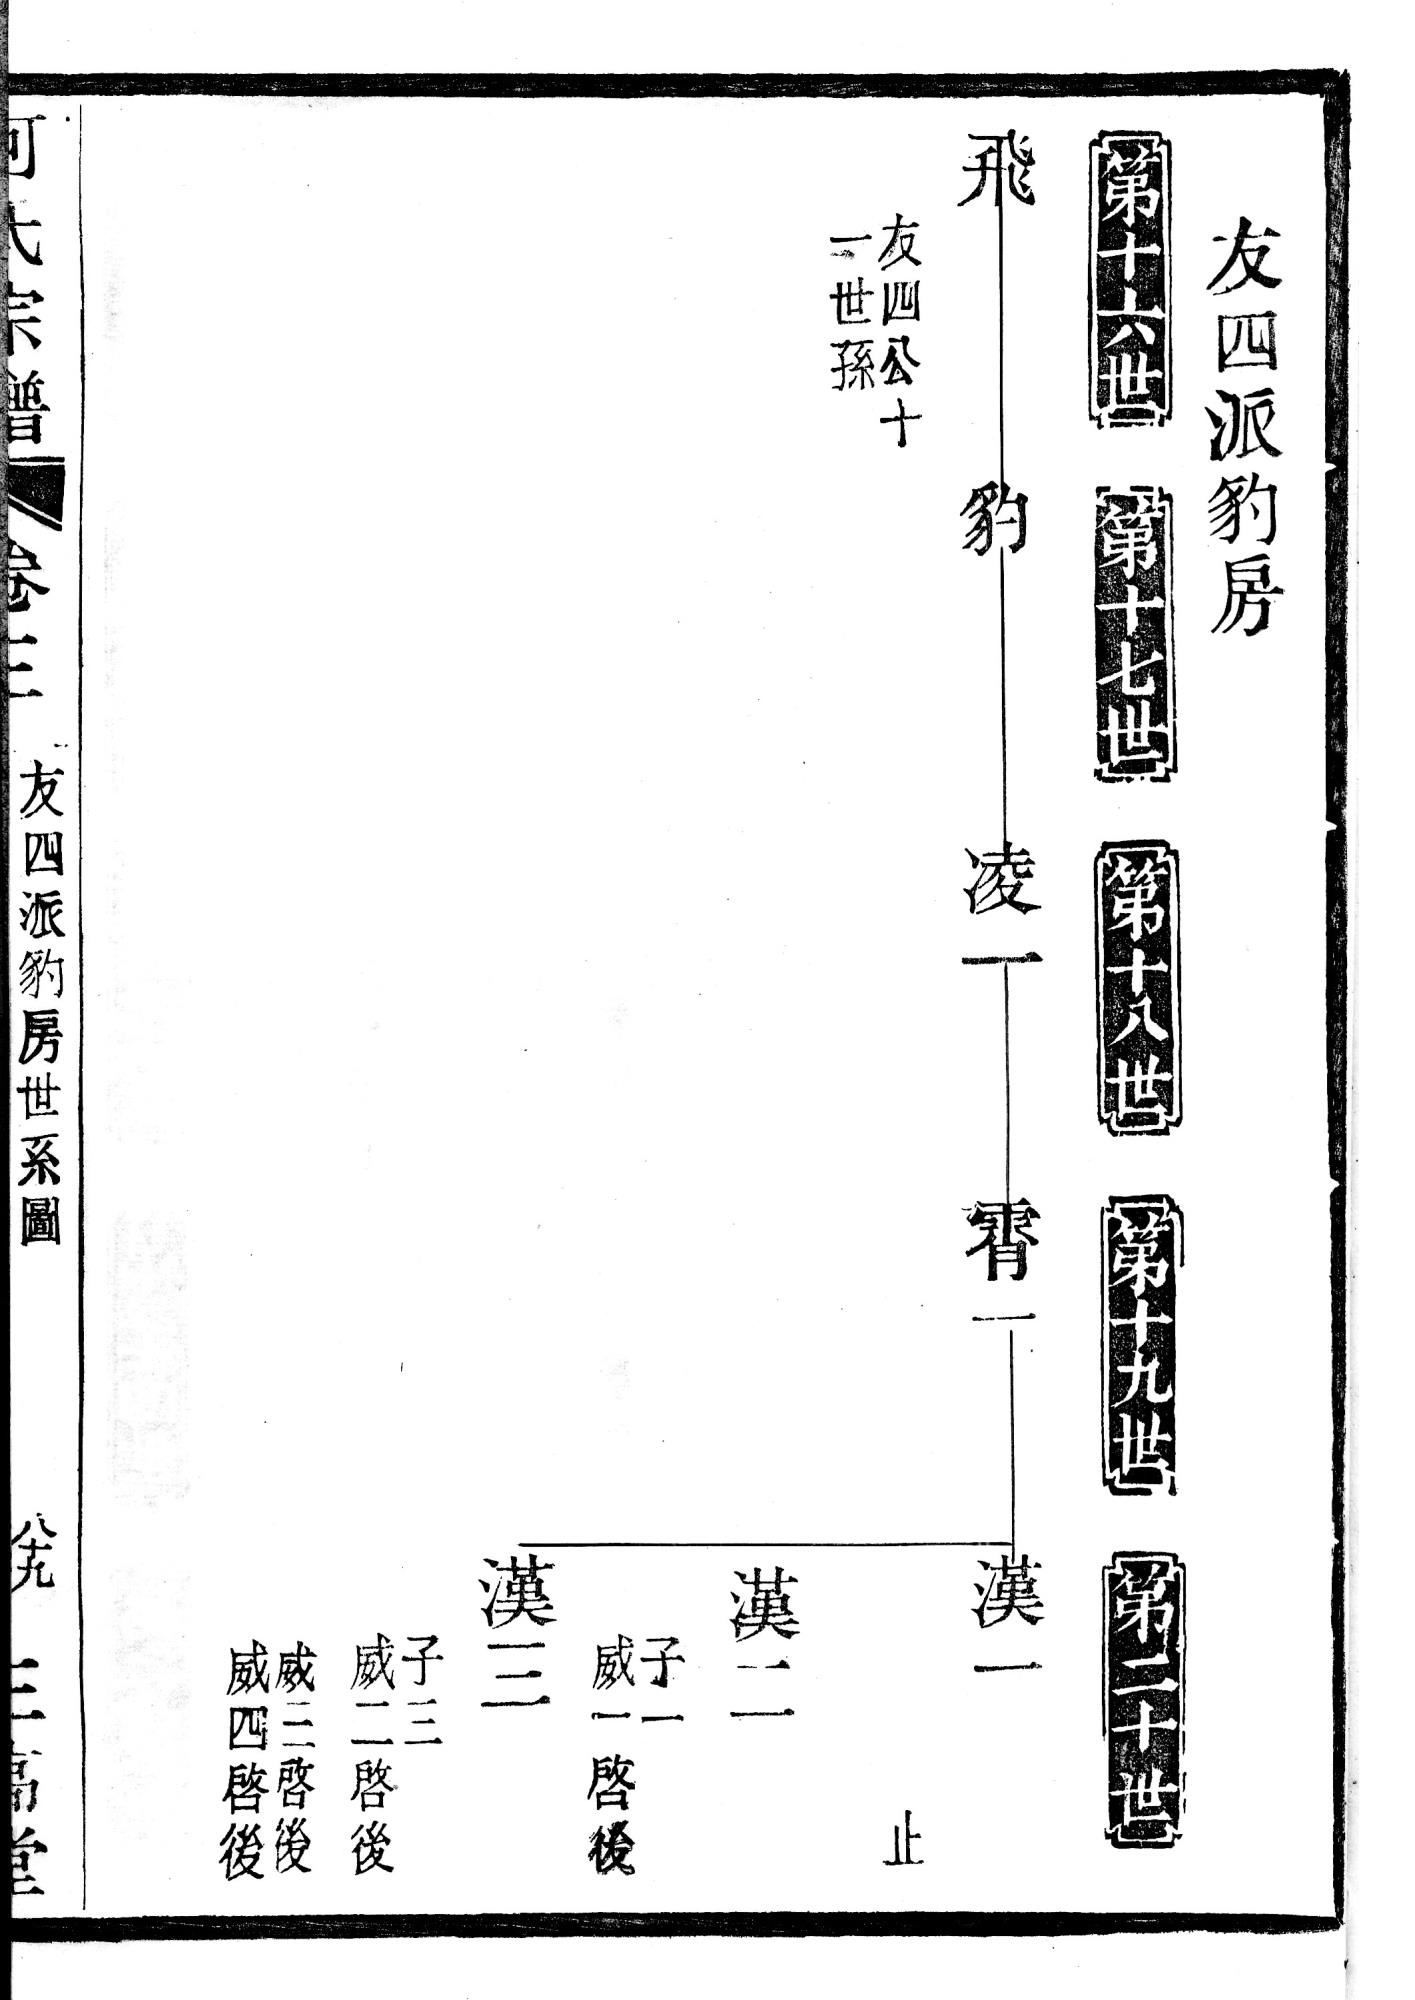 友四派豹房
第十六世
第十七世
第十八世
第十九世
第二十世
飛
豹
凌一
霄一
漢一
友四公十
一世孫
止
漢二
子一
威一啓後
漢三
子三
威二啓後
威三啓後
威四啓後
何氏宗譜
卷三
友四派豹房世系圖
八十九
三高堂